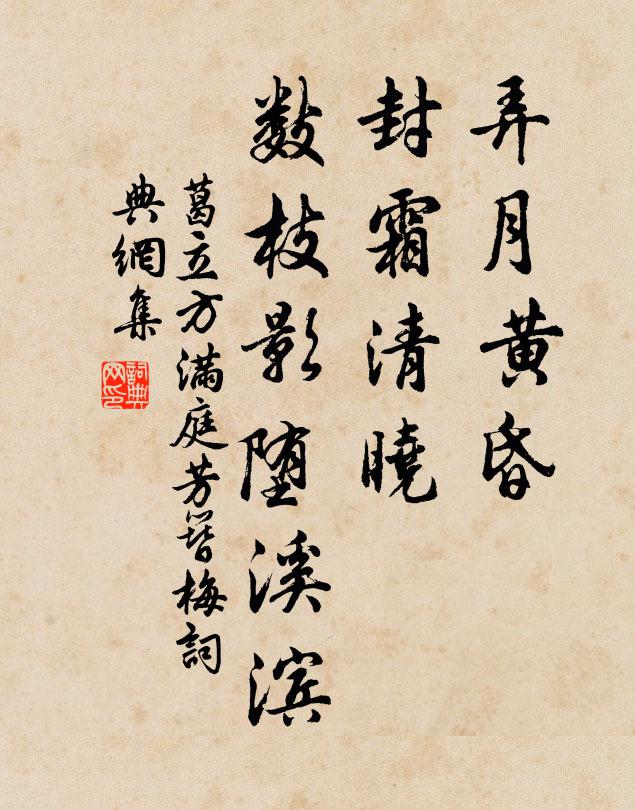 弄月黄昏
封霜清曉
数枝影堕溪滨
葛立方满庭芳簪梅詞
典網集
詞典网印